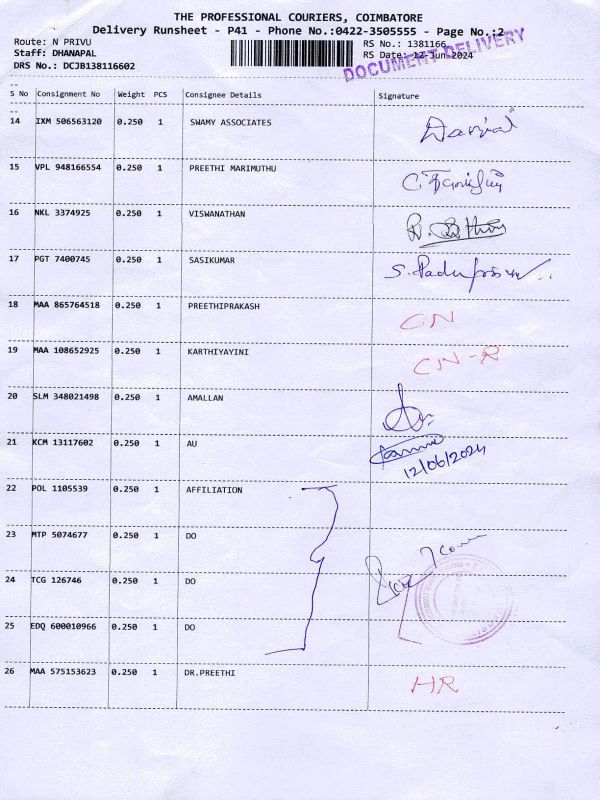 THE PROFESSIONAL COURIERS, COIMBATORE
Delivery Runsheet - P41 - Phone No.:0422-3505555 - Page No.:2
Route: N PRIVU
Staff: DHANAPAL
DRS No.: DCJB138116602
RS No.: 1381166
RS Date: 12-Jun-2024
DOCUMENT DELIVERY
S No Consignment No Weight PCS Consignee Details Signature
14 IXM 506563120 0.250 1 SWAMY ASSOCIATES
15 VPL 948166554 0.250 1 PREETHI MARIMUTHU
16 NKL 3374925 0.250 1 VISWANATHAN
17 PGT 7400745 0.250 1 SASIKUMAR
18 MAA 865764518 0.250 1 PREETHIPRAKASH CN
19 MAA 108652925 0.250 1 KARTHIYAYINI CN-R
20 SLM 348021498 0.250 1 AMALLAN
21 KCM 13117602 0.250 1 AU
12/06/2024
22 POL 1105539 0.250 1 AFFILIATION
23 MTP 5074677 0.250 1 DO
24 TCG 126746 0.250 1 DO
25 EDQ 600010966 0.250 1 DO
26 MAA 575153623 0.250 1 DR.PREETHI HR